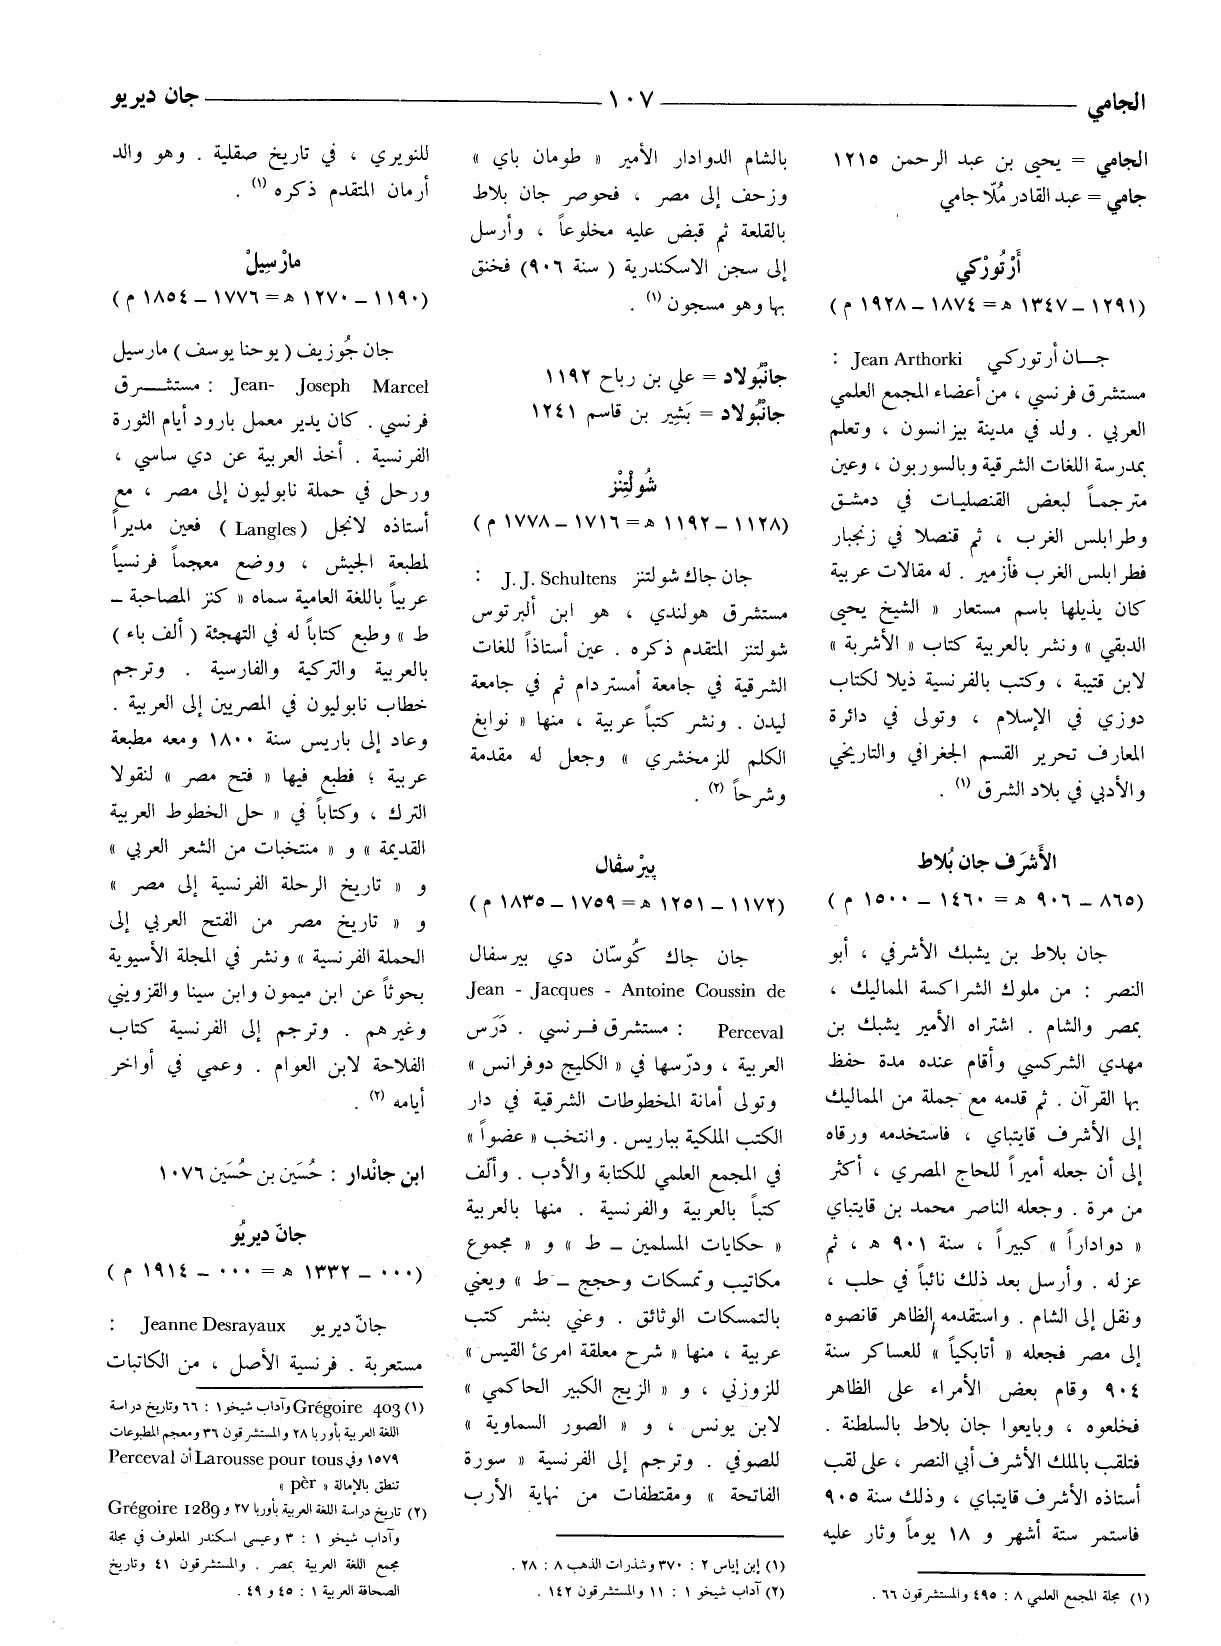 الجامي
١٠٧
جان ديريو
الجامي = يحيى بن عبد الرحمن ١٢١٥
جامي = عبد القادر مُلّا جامي
أَرْتُورْكي
(١٢٩١ – ١٣٤٧ ه = ١٨٧٤ – ١٩٢٨ م)
جــان أرتوركي Jean Arthorki :
مستشرق فرنسي ، من أعضاء المجمع العلمي
العربي . ولد في مدينة بيزانسون ، وتعلم
بمدرسة اللغات الشرقية وبالسوربون ، وعين
مترجماً لبعض القنصليات في دمشق
وطرابلس الغرب ، ثم قنصلا في زنجبار
فطرابلس الغرب فأزمير . له مقالات عربية
كان يذيلها باسم مستعار « الشيخ يحيى
الدبقي » ونشر بالعربية كتاب « الأشربة »
لابن قتيبة ، وكتب بالفرنسية ذيلا لكتاب
دوزي في الإسلام ، وتولى في دائرة
المعارف تحرير القسم الجغرافي والتاريخي
والأدبي في بلاد الشرق (١) .
الأَشرَف جان بُلاط
(٨٦٥ – ٩٠٦ ه = ١٤٦٠ – ١٥٠٠ م)
جان بلاط بن يشبك الأشرفي ، أبو
النصر : من ملوك الشراكسة المماليك ،
بمصر والشام . اشتراه الأمير يشبك بن
مهدي الشركسي وأقام عنده مدة حفظ
بها القرآن . ثم قدمه مع جملة من المماليك
إلى الأشرف قايتباي ، فاستخدمه ورقاه
إلى أن جعله أميراً للحاج المصري ، أكثر
من مرة . وجعله الناصر محمد بن قايتباي
« دواداراً » كبيراً ، سنة ٩٠١ ه ، ثم
عزله . وأرسل بعد ذلك نائباً في حلب ،
ونقل إلى الشام . واستقدمه الظاهر قانصوه
إلى مصر فجعله « أتابكياً » للعساكر سنة
٩٠٤ وقام بعض الأمراء على الظاهر
فخلعوه ، وبايعوا جان بلاط بالسلطنة .
فتلقب بالملك الأشرف أبي النصر ، على لقب
أستاذه الأشرف قايتباي ، وذلك سنة ٩٠٥
فاستمر ستة أشهر و ١٨ يوماً وثار عليه
(١) مجلة المجمع العلمي ٨ : ٤٩٥ والمستشرقون ٦٦ .
بالشام الدوادار الأمير « طومان باي »
وزحف إلى مصر ، فحوصر جان بلاط
بالقلعة ثم قبض عليه مخلوعاً ، وأرسل
إلى سجن الاسكندرية ( سنة ٩٠٦) فخنق
بها وهو مسجون (١) .
جانْبُولاد = علي بن رباح ١١٩٢
جانْبُولاد = بَشِير بن قاسم ١٢٤١
شُولْتِنْز
(١١٢٨ – ١١٩٢ ه = ١٧١٦ – ١٧٧٨ م)
جان جاك شولتنز J. J. Schultens :
مستشرق هولندي ، هو ابن ألبرتوس
شولتنز المتقدم ذكره . عين أستاذاً للغات
الشرقية في جامعة أمستردام ثم في جامعة
ليدن . ونشر كتباً عربية ، منها « نوابغ
الكلم للزمخشري » وجعل له مقدمة
وشرحاً (٢) .
بِيرْسفال
(١١٧٢ – ١٢٥١ ه = ١٧٥٩ – ١٨٣٥ م)
جان جاك كُوسّان دي بيرسفال
Jean - Jacques - Antoine Coussin de
Perceval : مستشرق فرنسي . دَرَس
العربية ، ودرّسها في « الكليج دوفرانس »
وتولى أمانة المخطوطات الشرقية في دار
الكتب الملكية بباريس . وانتخب « عضواً »
في المجمع العلمي للكتابة والأدب . وألّف
كتباً بالعربية والفرنسية . منها بالعربية
« حكايات المسلمين – ط » و « مجموع
مكاتيب وتمسكات وحجج – ط » ويعني
بالتمسكات الوثائق . وعني بنشر كتب
عربية ، منها « شرح معلقة امرئ القيس »
للزوزني ، و « الزيج الكبير الحاكمي »
لابن يونس ، و « الصور السماوية »
للصوفي . وترجم إلى الفرنسية « سورة
الفاتحة » ومقتطفات من نهاية الأرب
(١) إبن إياس ٢ : ٣٧٠ وشذرات الذهب ٨ : ٢٨ .
(٢) آداب شيخو ١ : ١١ والمستشرقون ١٤٢ .
للنويري ، في تاريخ صقلية . وهو والد
أرمان المتقدم ذكره (١) .
مارْسِيلْ
(١١٩٠ – ١٢٧٠ ه = ١٧٧٦ – ١٨٥٤ م)
جان جُوزيف ( يوحنا يوسف ) مارسيل
Jean- Joseph Marcel : مستشـرق
فرنسي . كان يدير معمل بارود أيام الثورة
الفرنسية . أخذ العربية عن دي ساسي ،
ورحل في حملة نابوليون إلى مصر ، مع
أستاذه لانجل (Langles ) فعين مديراً
لمطبعة الجيش ، ووضع معجماً فرنسياً
عربياً باللغة العامية سماه « كنز المصاحبة –
ط » وطبع كتاباً له في التهجئة ( ألف باء )
بالعربية والتركية والفارسية . وترجم
خطاب نابوليون في المصريين إلى العربية .
وعاد إلى باريس سنة ١٨٠٠ ومعه مطبعة
عربية ؛ فطبع فيها « فتح مصر » لنقولا
الترك ، وكتاباً في « حل الخطوط العربية
القديمة » و « منتخبات من الشعر العربي »
و « تاريخ الرحلة الفرنسية إلى مصر »
و « تاريخ مصر من الفتح العربي إلى
الحملة الفرنسية » ونشر في المجلة الأسيوية
بحوثاً عن ابن ميمون وابن سينا والقزويني
وغيرهم . وترجم إلى الفرنسية كتاب
الفلاحة لابن العوام . وعمي في أواخر
أيامه (٢) .
ابن جانْدار : حُسَين بن حُسَين ١٠٧٦
جانّ ديريُو
(٠٠٠ – ١٣٣٢ ه = ٠٠٠ – ١٩١٤ م)
جانّ ديريو Jeanne Desrayaux :
مستعربة . فرنسية الأصل ، من الكاتبات
(١) Grégoire 403 وآداب شيخو ١ : ٦٦ وتاريخ دراسة
اللغة العربية بأوربا ٢٨ والمستشرقون ٣٦ ومعجم المطبوعات
١٥٧٩ وفي Larousse pour tous أن Perceval
تنطق بالإمالة « pèr »
(٢) تاريخ دراسة اللغة العربية بأوربا ٢٧ و Grégoire 1289
وآداب شيخو ١ : ٣ وعيسى اسكندر المعلوف في مجلة
مجمع اللغة العربية بمصر . والمستشرقون ٤١ وتاريخ
الصحافة العربية ١ : ٤٥ و ٤٩ .